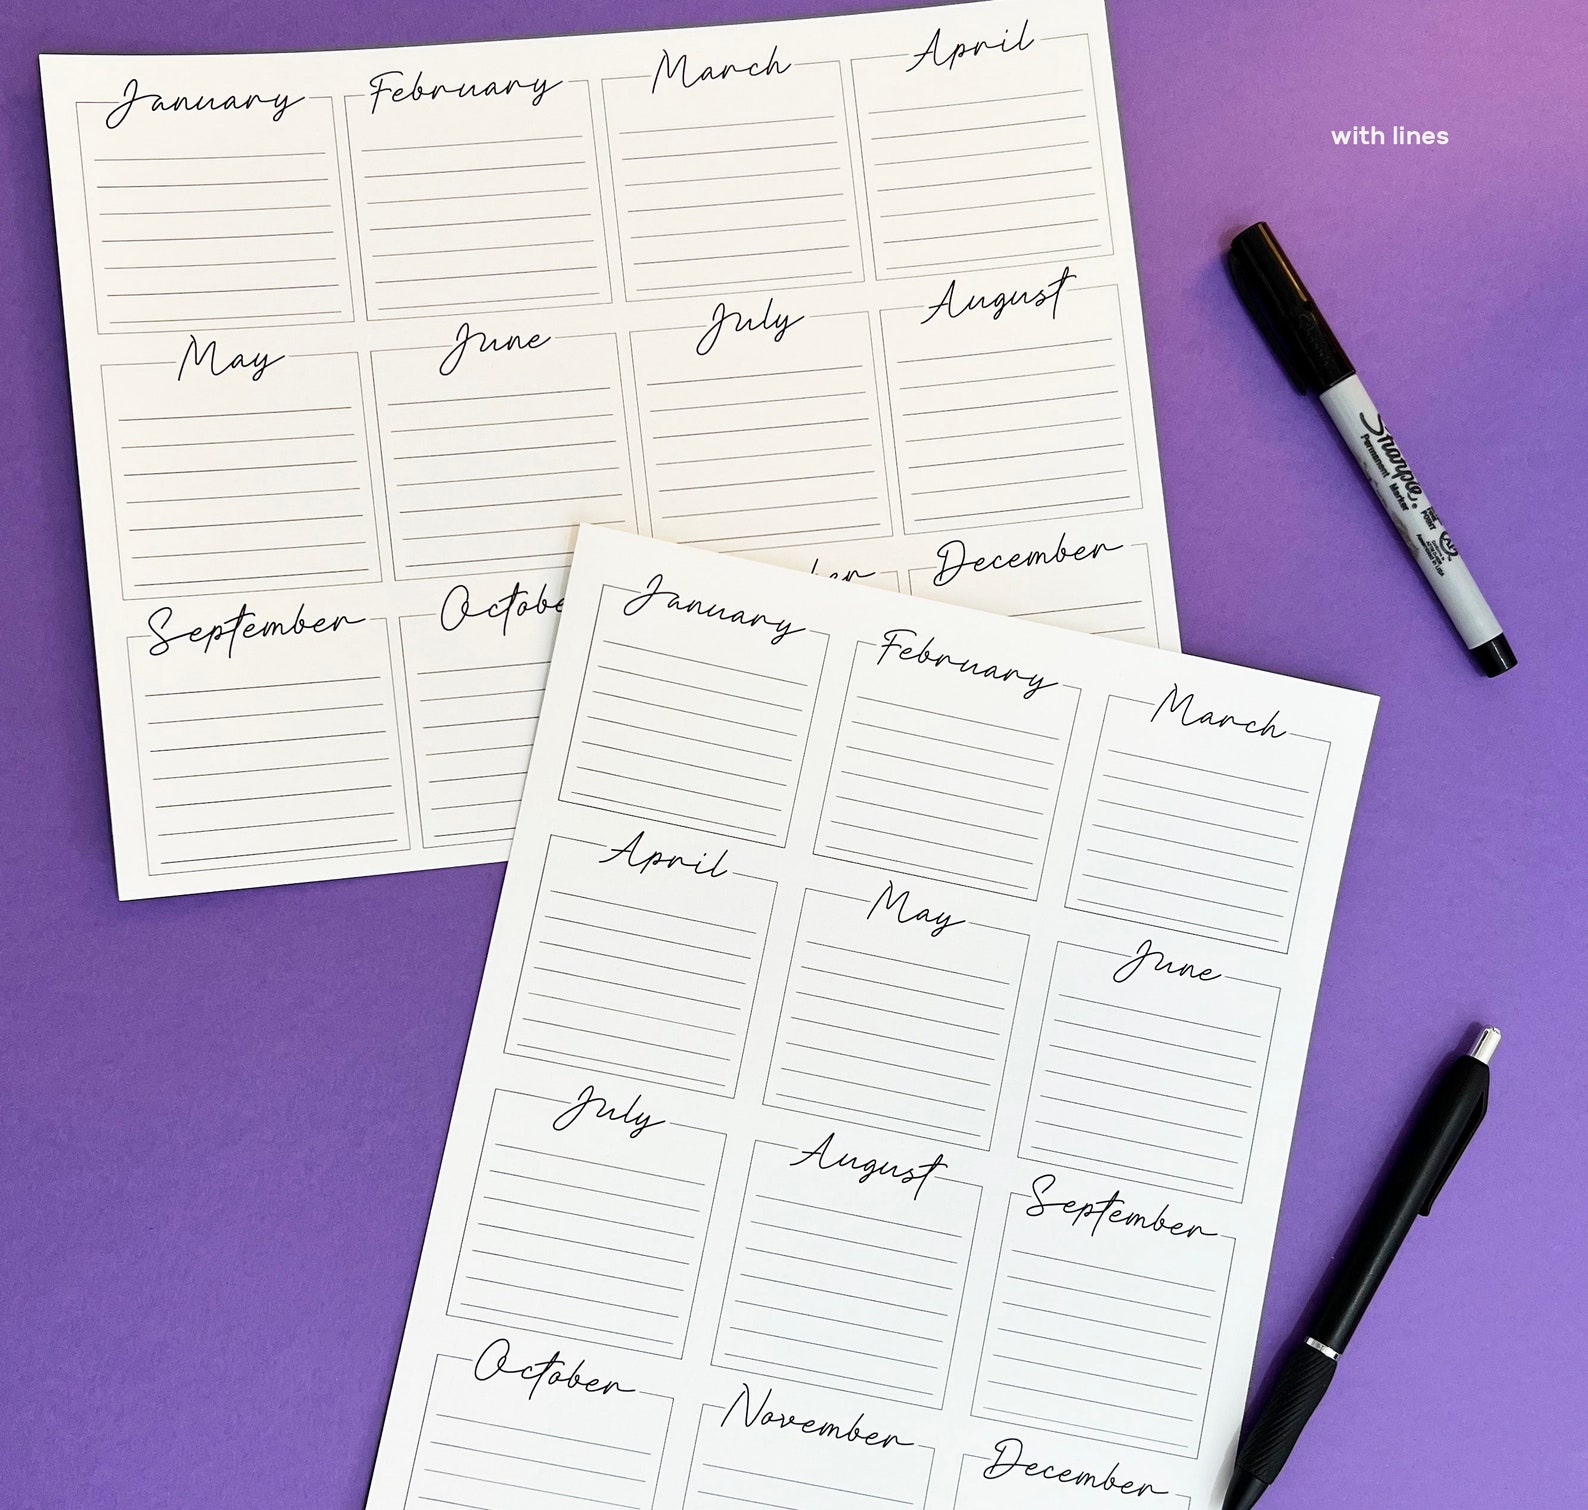 January February March April
with lines
May June July August
September Octobe ber December
January February March
April May June
July August September
October November December
Sharpie.
Permanent Marker